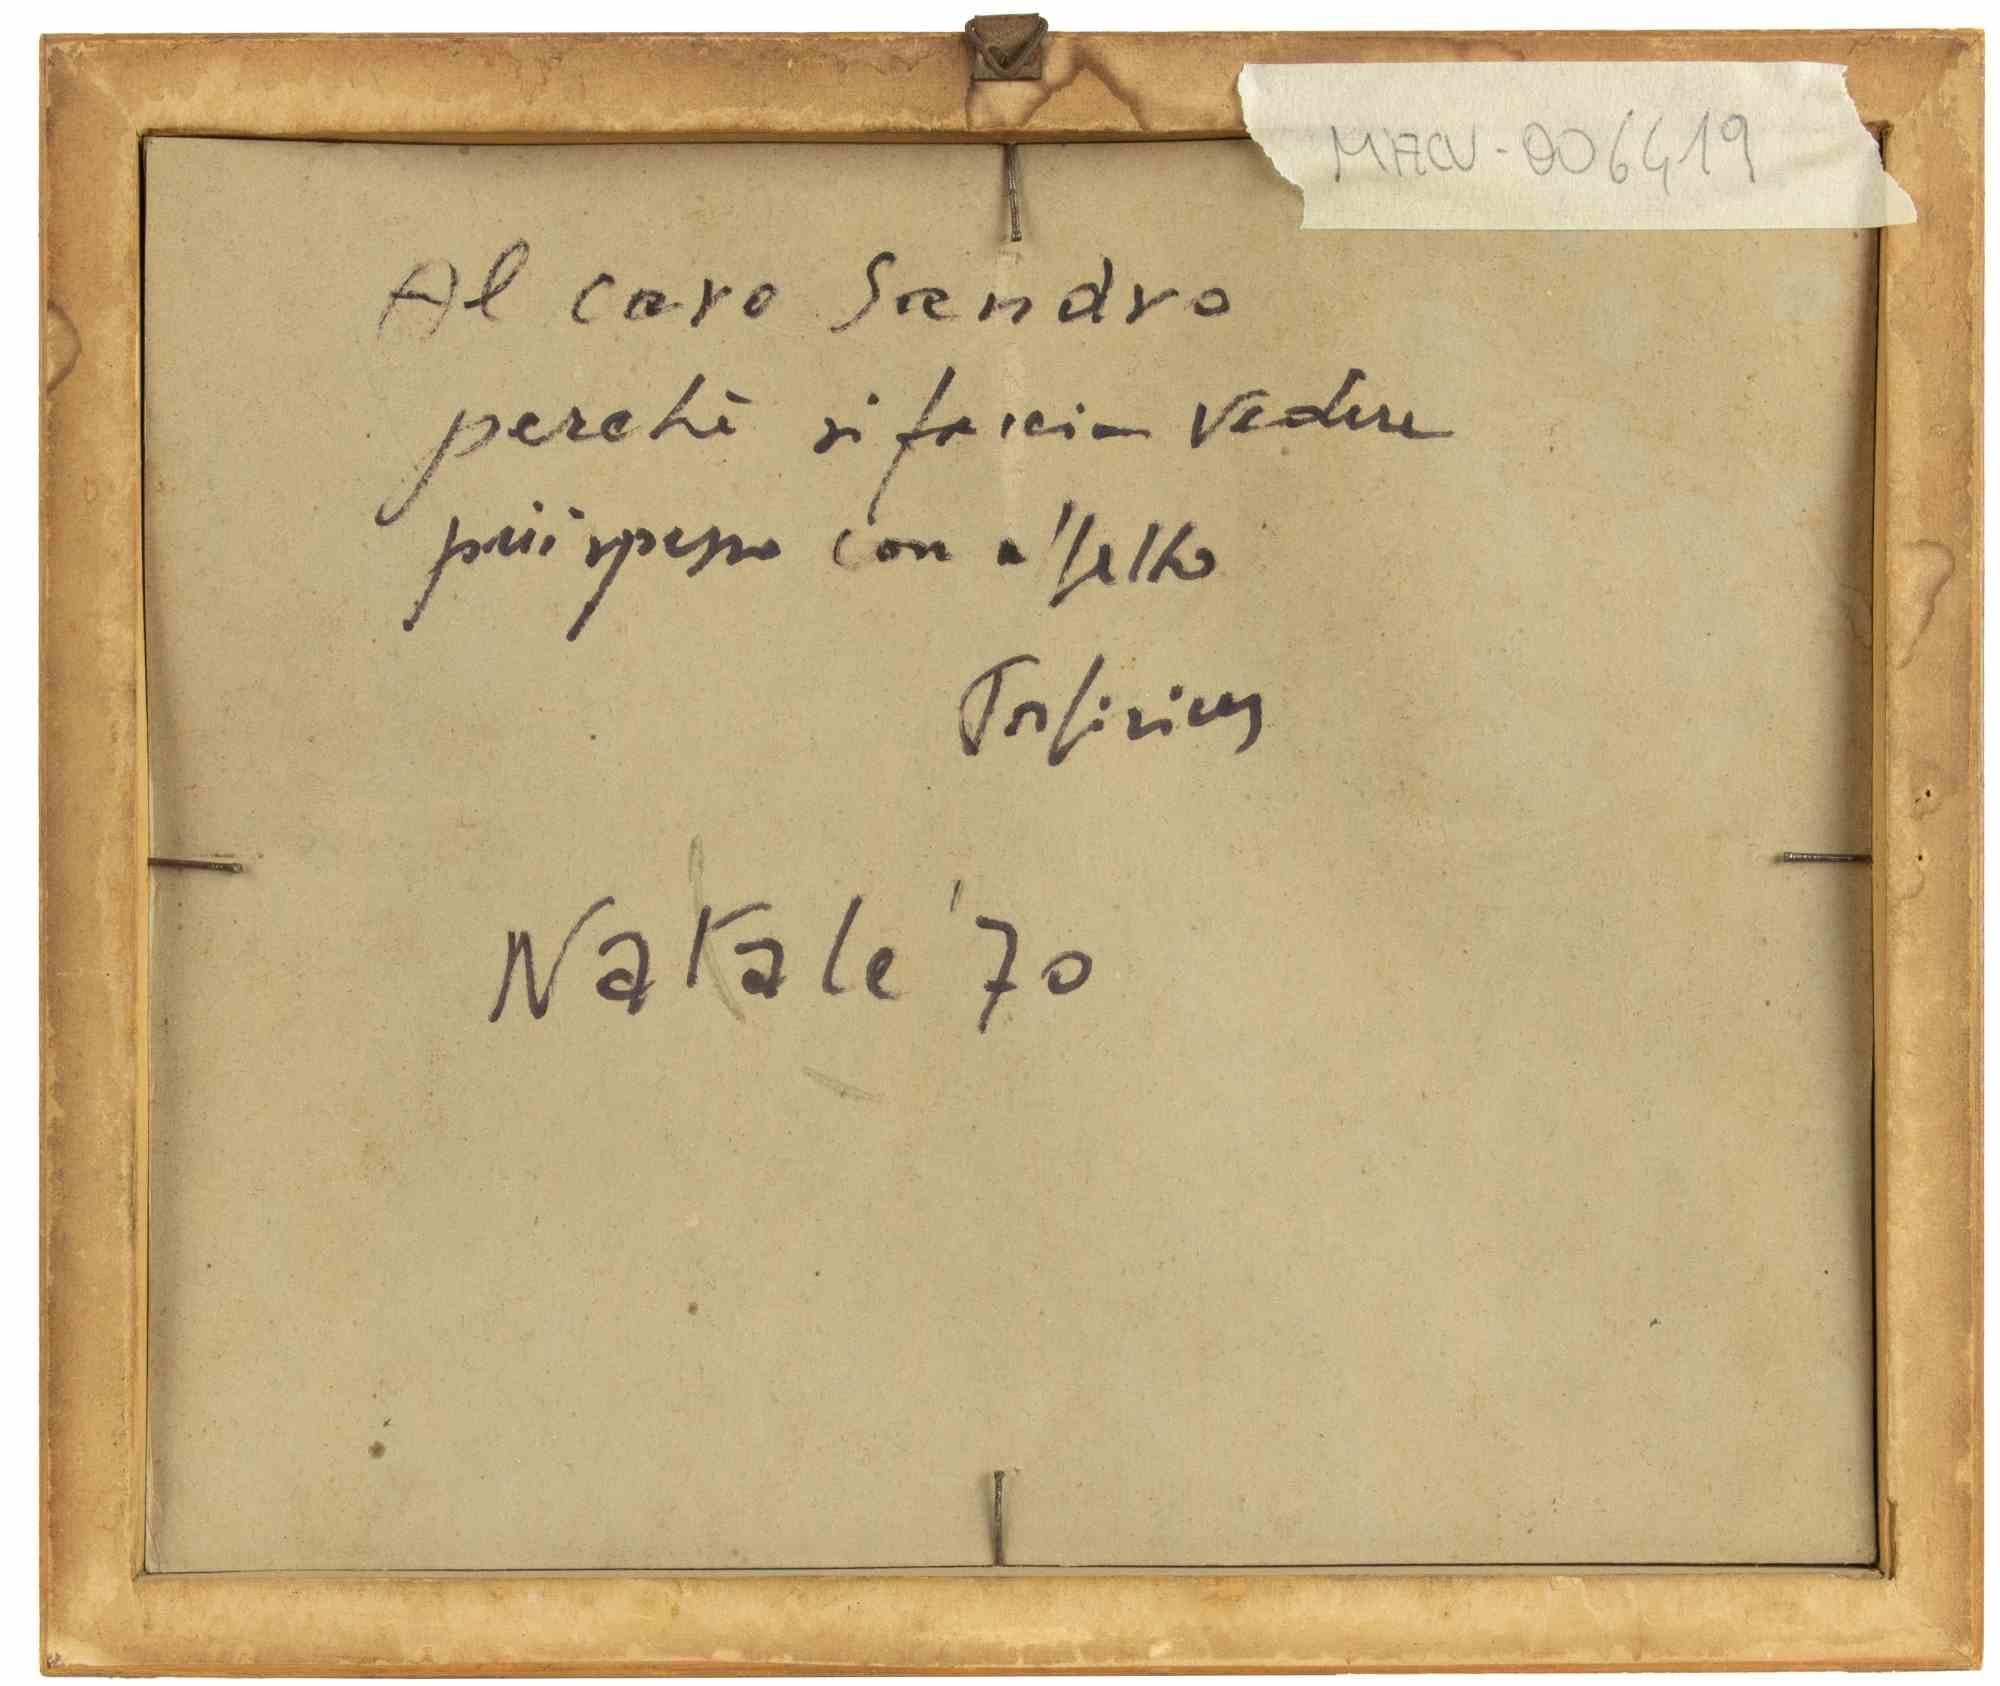 MACN-006419
Al caro Sandro
perchè si faccia vedere
più spesso con affetto
Natale '70